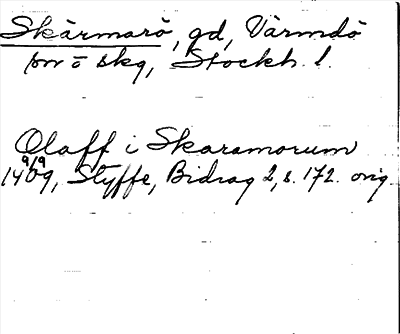 Skärmarö, gd, Värmdö
sn o skg, Stockh. l.
Olaff i Skaramorum
9/9
1409, Styffe, Bidrag 2, s. 172. orig.